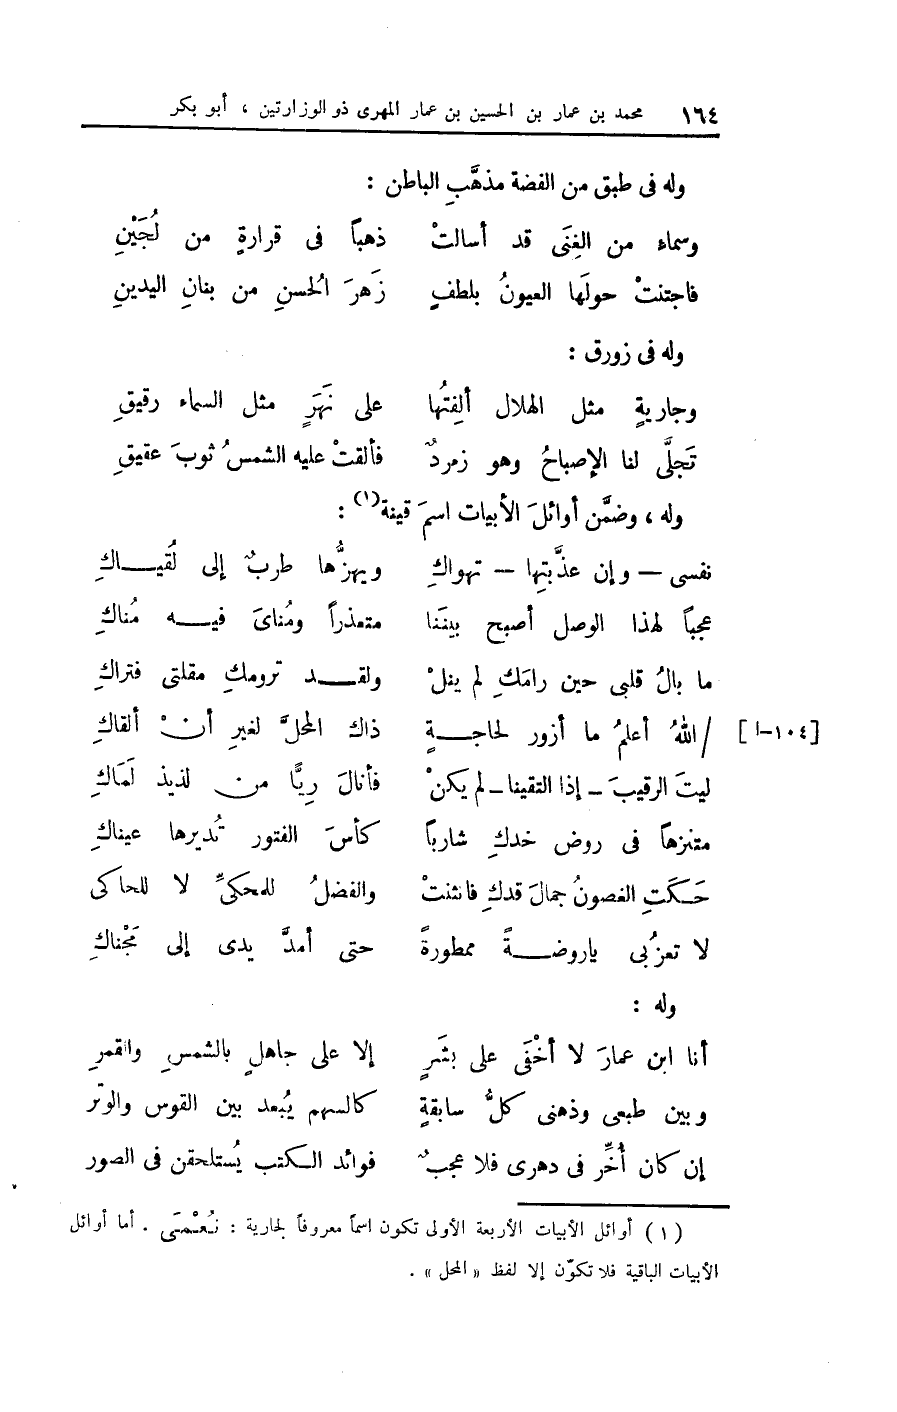 ١٦٤ محمد بن عمار بن الحسين بن عمار المهرى ذو الوزارتين ، أبو بكر
وله فى طبق من الفضة مذهَّبِ الباطن :
وسماء من الغِنَى قد أسالتْ ذهباً فى قرارةٍ من لُجَيْنِ
فاجتنتْ حولَها العيونُ بلطفٍ زَهرَ الحُسنِ من بنانِ اليدينِ
وله فى زورق :
وجاريةٍ مثل الهلال ألِفتُها على نَهَرٍ مثل السماء رقيقِ
تَجلَّى لنا الإصباحُ وهو زمردٌ فألقتْ عليه الشمسُ ثوبَ عقيقِ
وله ، وضمَّن أوائلَ الأبيات اسمَ قينة(١) :
نفسى — وإن عذَّبتِها — تهواكِ ويهزُّها طربٌ إلى لُقياكِ
عجباً لهذا الوصل أصبح بينَنا متعذراً ومُناىَ فيه مُناكِ
ما بالُ قلبى حين رامَكِ لم ينلْ ولقد ترومكِ مقلتى فتراكِ
/ اللهُ أعلمُ ما أزور لحاجةٍ ذاك المحلَّ لغيرِ أنْ ألقاكِ [١٠٤-ا]
ليتَ الرقيبَ – إذا التقينا – لم يكنْ فأنالَ رِيًّا من لذيذ لَمَاكِ
متنزهاً فى روض خدكِ شارباً كأسَ الفتور تُديرها عيناكِ
حَكَتِ الغصونُ جمالَ قدكِ فانثنتْ والفضلُ للمحكىِّ لا للحاكى
لا تعزُبى ياروضةً ممطورةً حتى أمدَّ يدى إلى مَجْناكِ
وله :
أنا ابن عمارَ لا أخْفَى على بشَرٍ إلا على جاهلٍ بالشمسِ والقمرِ
وبين طبعى وذهنى كلُّ سابقةٍ كالسهم يُبعد بين القوس والوتر
إن كان أُخِّر فى دهرى فلا عجبٌ فوائد الكتب يُستلحقن فى الصور
(١) أوائل الأبيات الأربعة الأولى تكون اسماً معروفاً لجارية : نُعْمَى . أما أوائل
الأبيات الباقية فلا تكوّن إلا لفظ « المحل » .